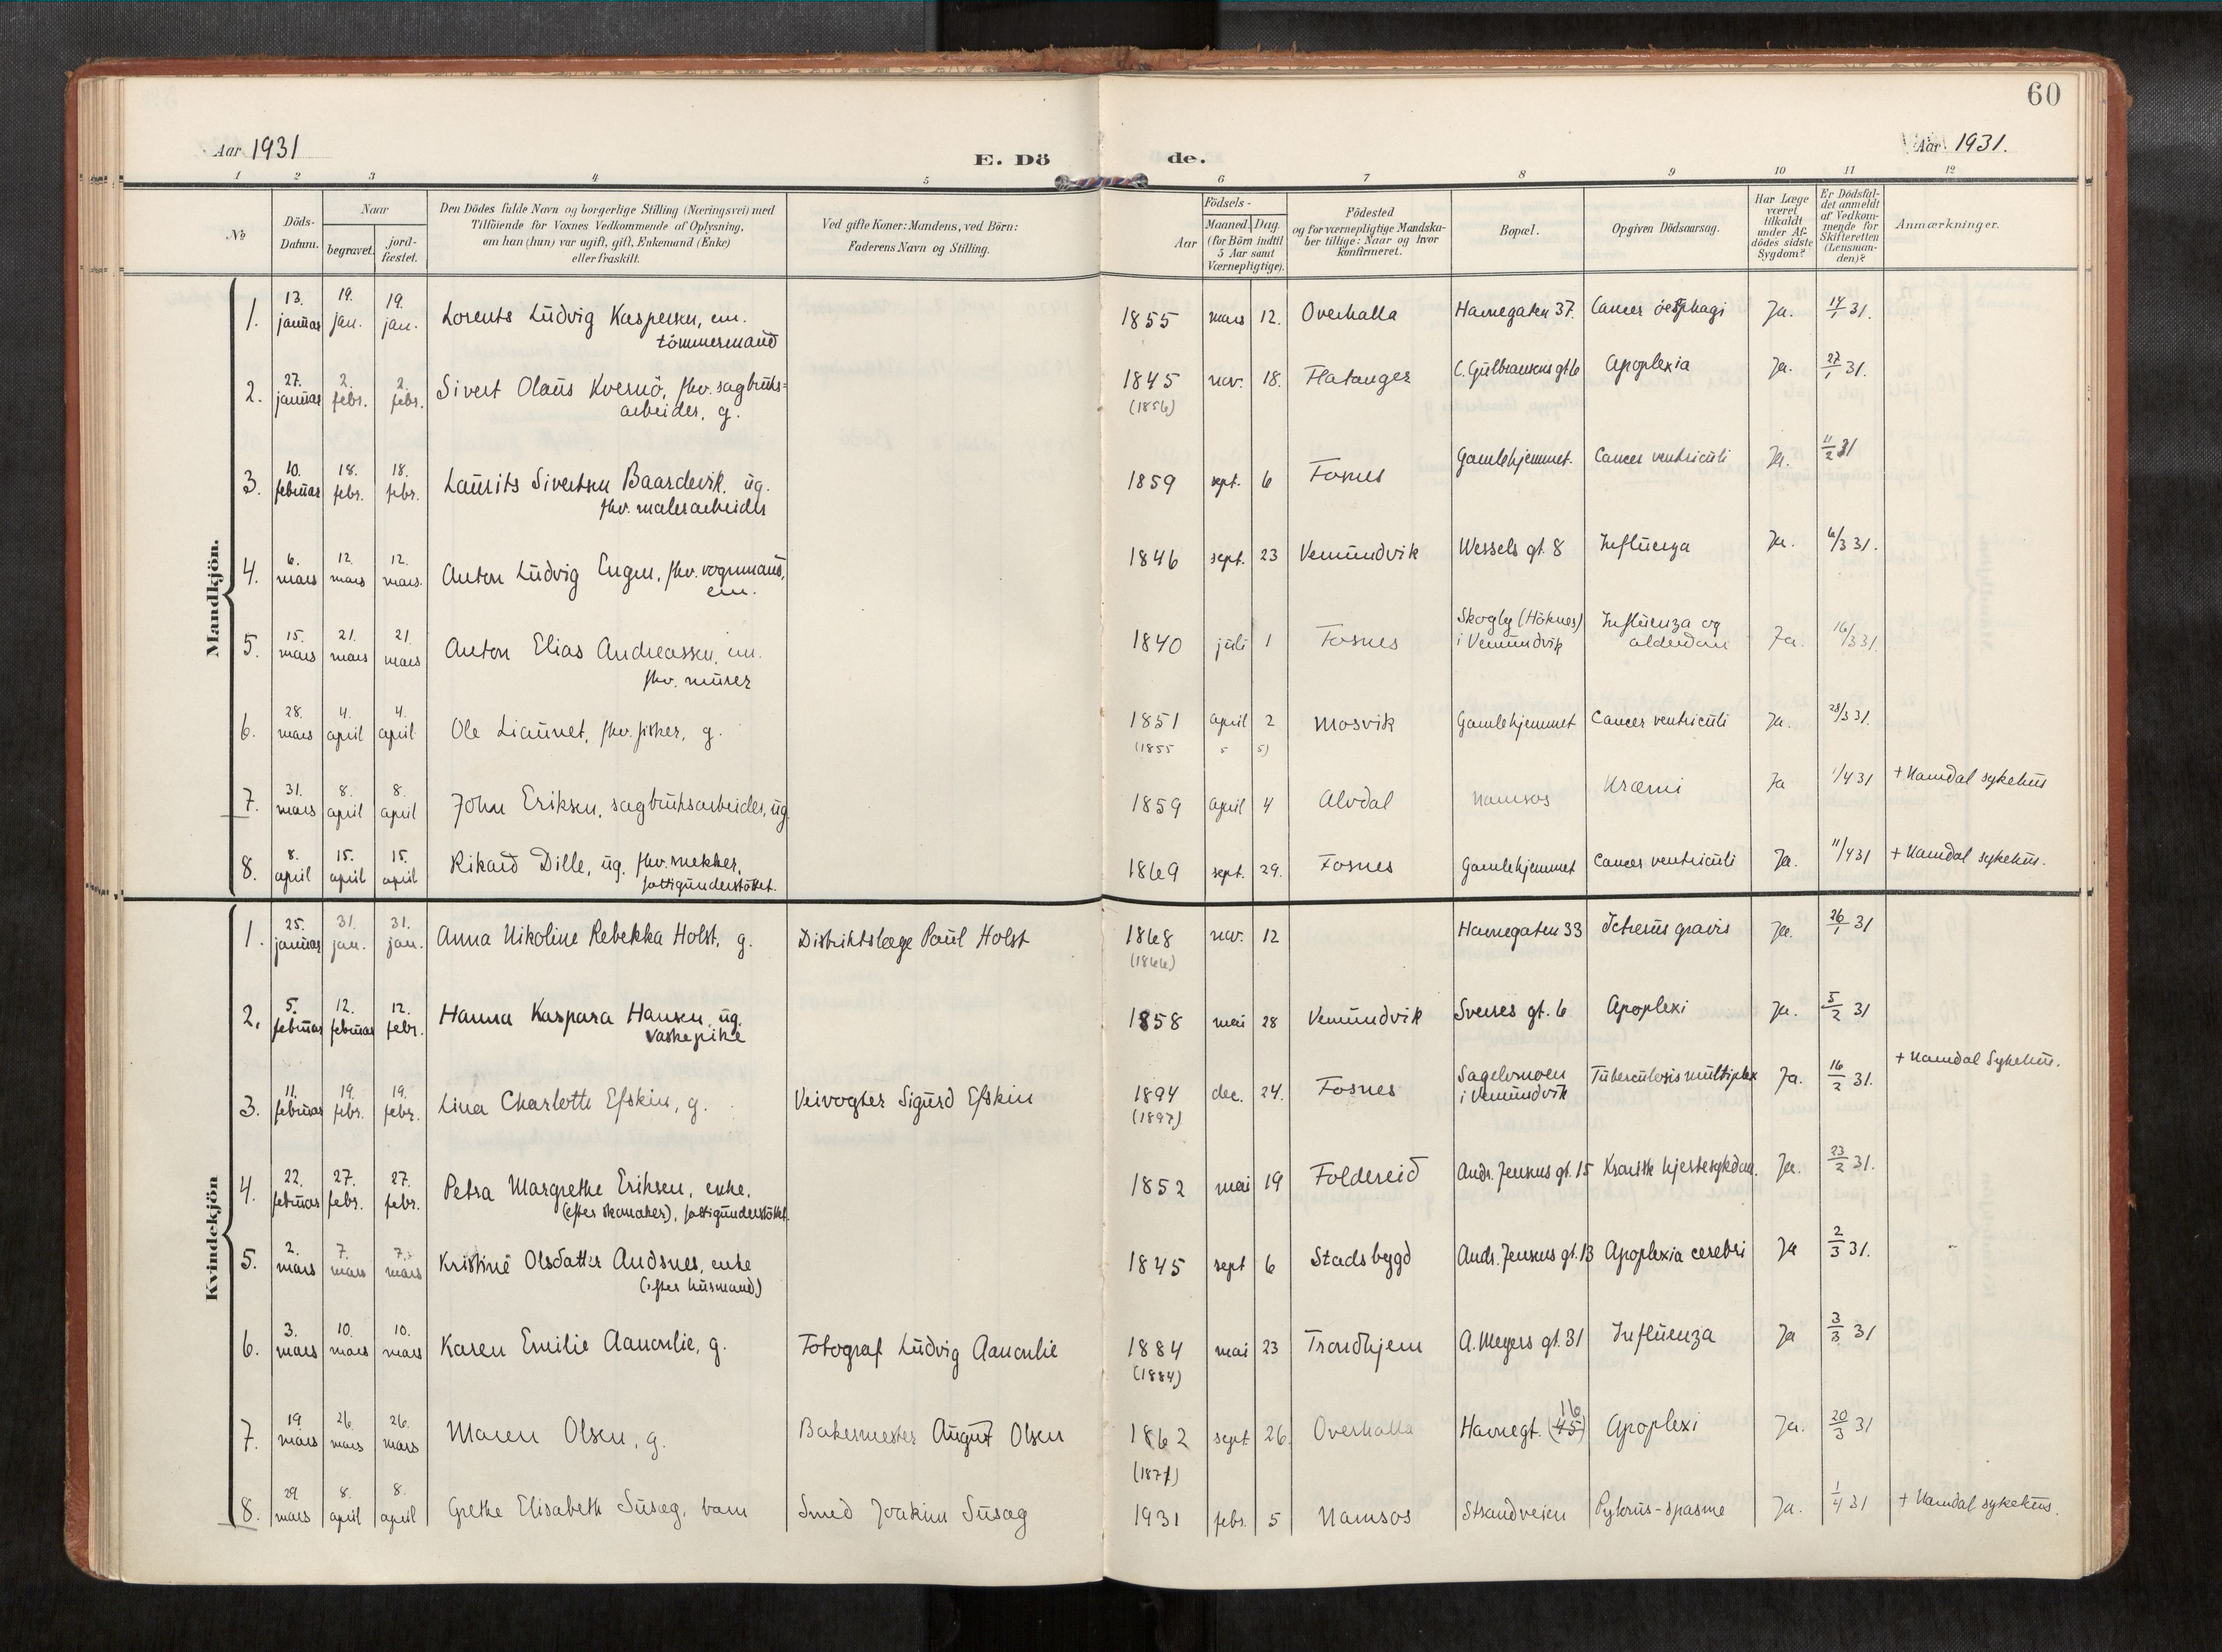 60
Aar 1931
E. Dö de.
Aar 1931.
1 2 3 4 5 6 7 8 9 10 11 12
№
Döds-Datum.
Naar
begravet.
jord-fæstet.
Den Dödes fulde Navn og borgerlige Stilling (Næringsvei) med
Tilföiende for Voxnes Vedkommende af Oplysning,
om han (hun) var ugift, gift, Enkemand (Enke)
eller fraskilt.
Ved gifte Koner: Mandens, ved Börn:
Faderens Navn og Stilling.
Födsels-
Aar
Maaned. Dag.
(for Börn indtil
5 Aar samt
Værnepligtige).
Födested
og for værnepligtige Mandska-
ber tillige: Naar og hvor
konfirmeret.
Bopæl.
Opgiven Dödsaarsag.
Har Læge
været
tilkaldt
under Af-
dödes sidste
Sygdom?
Er Dödsfal-
det anmeldt
af Vedkom-
mende for
Skifteretten
(Lensman-
den)?
Anmærkninger.
Mandkjön.
1. 13. januar 19. jan. 19. jan. Lorents Ludvig Kaspersen, em. 1855 mars 12. Overhalla Havnegaten 37. Cancer oesophagi Ja. 14/1 31.
tömmermand
2. 27. januar 2. febr. 2. febr. Sivert Olaus Kvernö, fhv. sagbruks= 1845 nov. 18. Flatanger C. Gulbransens gt 6 Apoplexia Ja. 27/1 31.
arbeider, g. (1856)
3. 10. februar 18. febr. 18. febr. Laurits Sivertsen Baardsvik, ug. 1859 sept. 6 Fosnes Gamlehjemmet. Cancer ventriculi Ja. 11/2 31
fhv. malerarbeider
4. 6. mars 12. mars 12. mars. Anton Ludvig Engen, fhv. vognmand, 1846 sept. 23 Vemundvik Wessels gt. 8 Influenza Ja. 6/3 31.
em.
5. 15. mars 21. mars 21. mars Anton Elias Andreassen, em. 1840 juli 1 Fosnes Skogly (Höknes) i Vemundvik Influenza og alderdom Ja. 16/3 31.
fhv. murer
6. 28. mars 4. april 4. april Ole Liaunet, fhv. fisker, g. 1851 april 2 Mosvik Gamlehjemmet Cancer ventriculi Ja. 28/3 31.
(1855 5 5)
7. 31. mars 8. april 8. april John Eriksen, sagbruksarbeider, ug. 1859 april 4 Alvdal Namsos Uræmi Ja 1/4 31 + Namdal sykehus
8. 8. april 15. april 15. april Rikard Dille, ug. fhv. snekker, 1869 sept. 29. Fosnes Gamlehjemmet Cancer ventriculi Ja. 11/4 31 + Namdal sykehus.
fattigunderstöttet.
Kvindekjön
1. 25. januar 31. jan. 31. jan. Anna Nikoline Rebekka Holst, g. Distriktslæge Paul Holst 1868 nov. 12 Havnegaten 33 Icterus gravis Ja. 26/1 31
(1866)
2. 5. februar 12. februar 12. febr. Hanna Kaspara Hansen, ug. 1858 mai 28 Vemundvik Sverres gt. 6 Apoplexi Ja. 5/2 31
vaskepike
3. 11. februar 19. febr. 19. febr. Lina Charlotte Efskin, g. Veivogter Sigurd Efskin 1894 dec. 24. Fosnes i Vemundvik Tuberculosis multiplex Ja. 16/2 31. + Namdal Sykehus.
(1897)
4. 22. februar 27. febr. 27. febr. Petra Margrethe Eriksen, enke. 1852 mai 19 Foldereid Ands. Jensens gt. 15 Kronisk hjertesykdom. Ja. 23/2 31.
(efter skomaker), fattigunderstöttet.
5. 2. mars 7. mars 7. mars Kristine Olsdatter Andsnes, enke 1845 sept 6 Stadsbygd Ands. Jensens gt. 13 Apoplexia cerebri Ja 2/3 31.
(efter husmand)
6. 3. mars 10. mars 10. mars Karen Emilie Aanonlie, g. Fotograf Ludvig Aanonlie 1884 mai 23 Trondhjem A. Meyers gt. 31 Influenza Ja 3/3 31
(1884)
7. 19 mars 26. mars 26. mars Maren Olsen, g. Bakermester August Olsen 1862 sept. 26. Overhalla Havnegt. 16 (45) Apoplexi Ja. 20/3 31
(1871)
8. 29 mars 8. april 8. april Grethe Elisabeth Susæg, barn Smed Joakim Susæg 1931 febr. 5 Namsos Strandveien Pylorus-spasme Ja. 1/4 31 + Namdal sykehus.